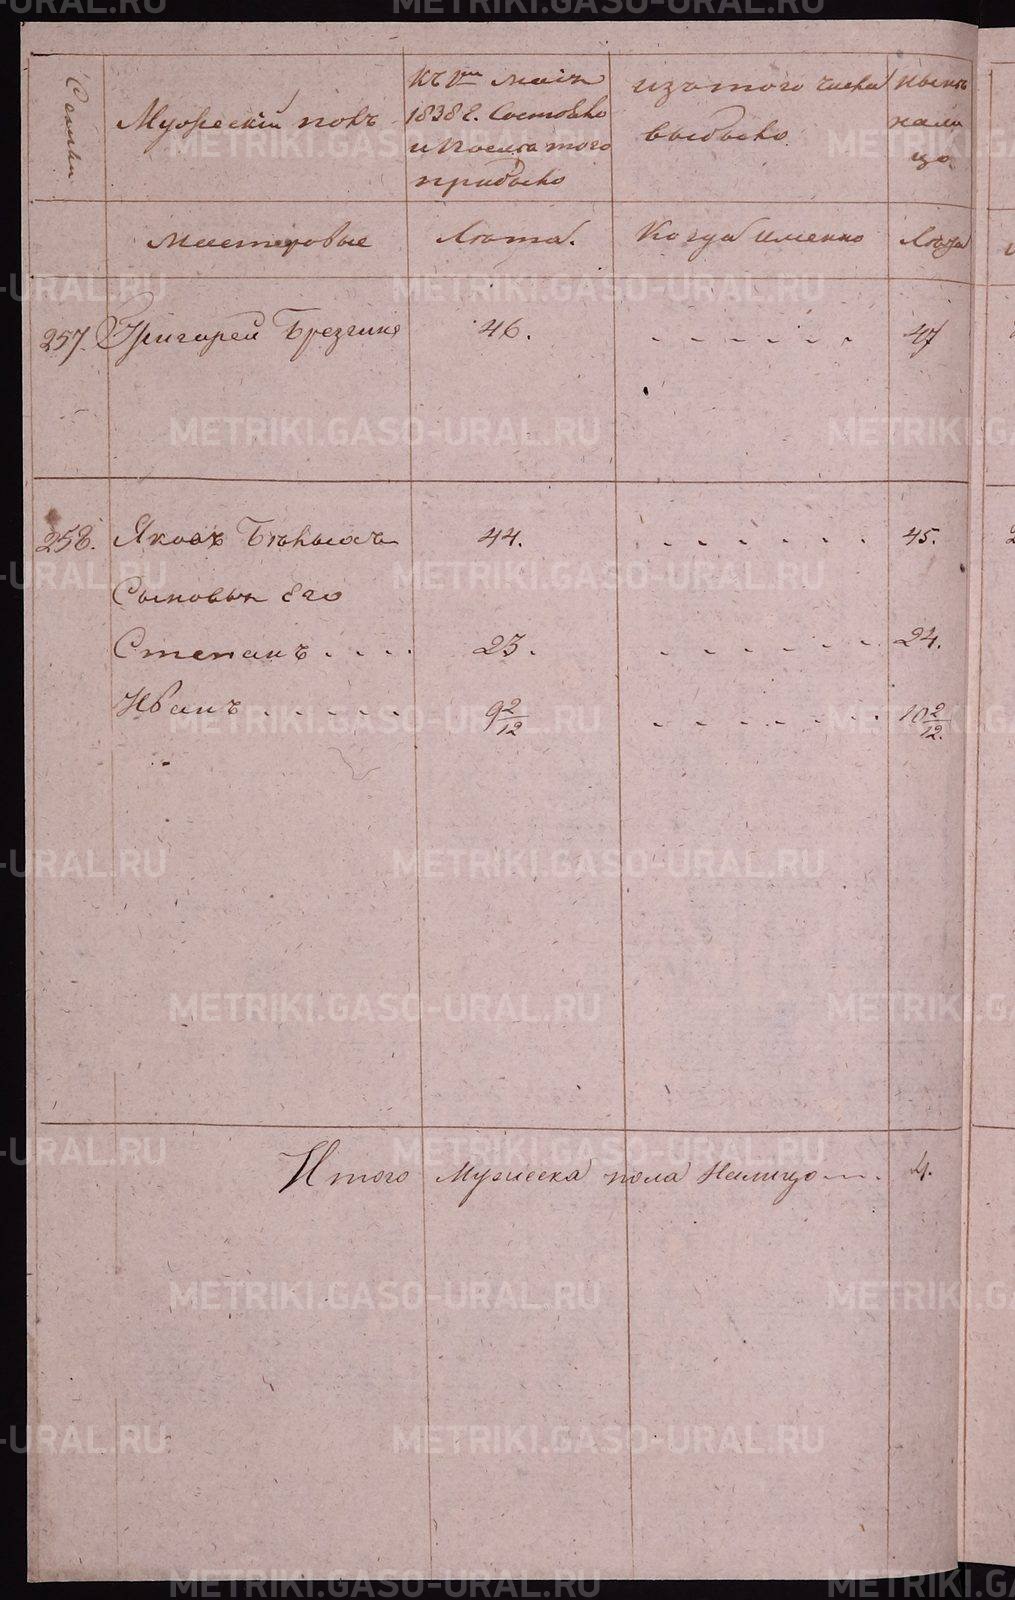 Семьи
Мужескій полъ
Къ 1му маія
1838 г. Состояло
и После того
прибыло
изъ того числа
выбыло
ныне
нали
цо
Мастеровые
Лета.
Когда именно
Лета
257. Григорей Брезгинъ 46. 47
258. Яковъ 44. 45.
Сыновья Его
Степанъ 23. 24.
Иванъ 9 2/12 10 2/12.
Итого Мужеска пола Налицо 4.
METRIKI.GASO-URAL.RU